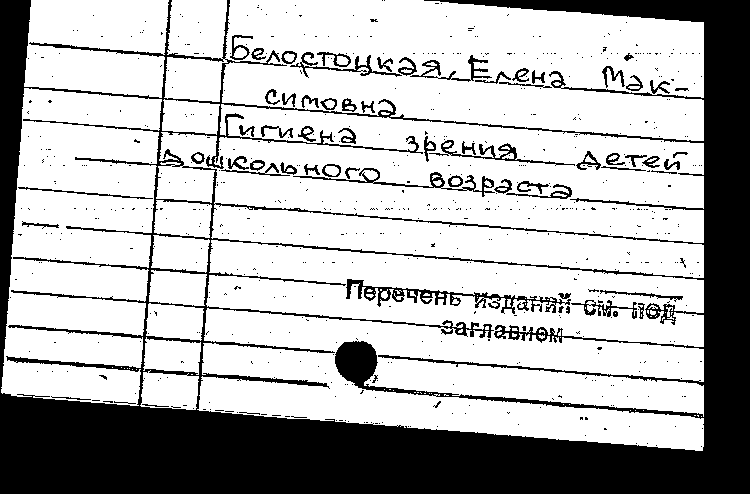 Белостоцкая, Елена Мак-
симовна.
Гигиена зрения детей
дошкольного возраста
Перечень изданий см. под
заглавием